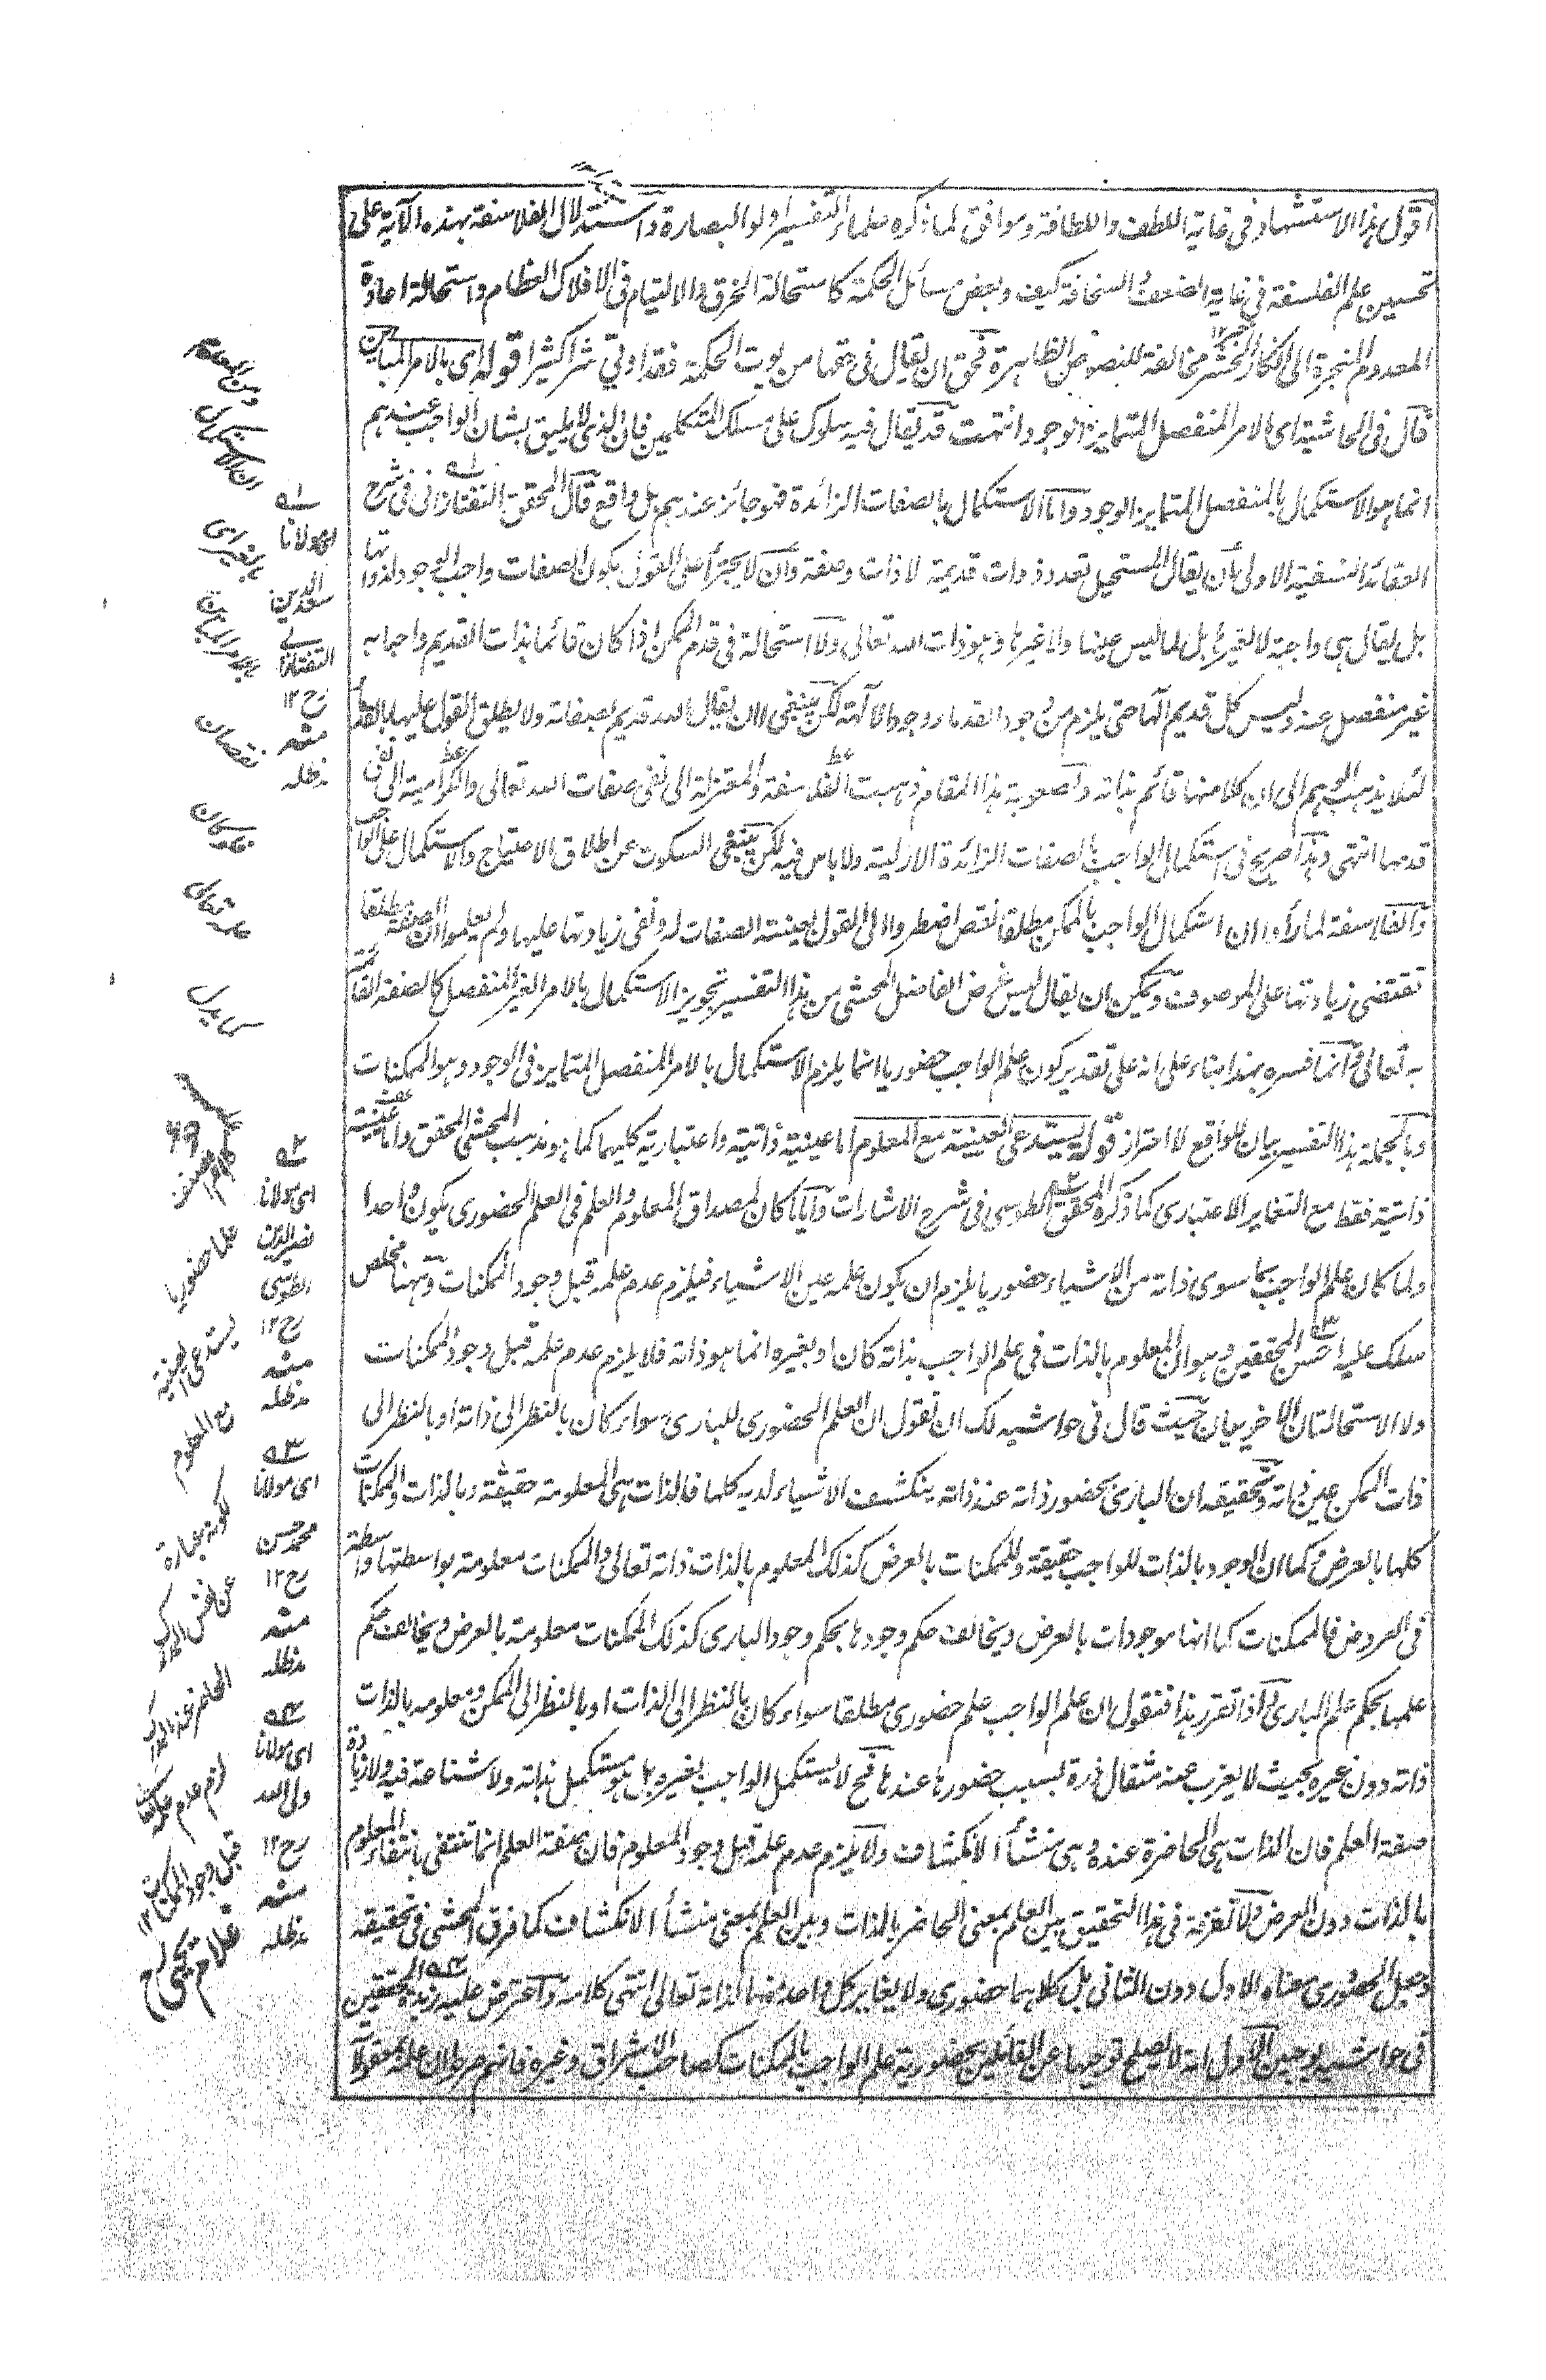 اقول هذا الاستشهاد في غاية اللطف واللطافة وموافق لما ذكره علماء التفسير اولو البصارة واستدلال الفلاسفة بهذه الآية على
تحسين علم الفلسفة في غاية الضعف السخافة كيف وبعض مسائل الحكمة كاستحالة الخرق والالتيام في الافلاك العظام واستحالة اعادة
المعدوم المنجرة الى انكار الحشر مخالفة للنصوص الظاهرة فحق ان يقال في حقها من يوت الحكمة فقد اوتي شرا كثيرا قوله اى بالامر المباين
قال في الحاشية اى الامر المنفصل المتمايز الوجود انتهت قد يقال فيه سلوك على مسلك المتكلمين فان الذى لا يليق بشان الواجب عندهم
انما هو الاستكمال بالمنفصل المتمايز الوجود واما الاستكمال بالصفات الزائدة فهو جائز عندهم بل واقع قال المحقق التفتازانى فى شرح
العقائد النسفية الاولى بان يقال المستحيل تعدد ذوات قديمة لا ذات وصفة وان لا يجترأ على القول بكون الصفات واجب الوجود لذواتها
بل يقال هى واجبة لا لغيرها بل لما ليس عينها ولا غيرها وهو ذات الله تعالى ولا استحالة فى قدم الممكن اذا كان قائما بذات القديم واجبا به
غير منفصل عنه وليس كل قديم آلها حتى يلزم من وجود القدماء وجود الآلهة لكن ينبغى ان يقال الله قديم بصفاته ولا يطلق القول عليها بالقدماء
لئلا يذهب الوهم الى ان كلا منها قائم بذاته ولصعوبة هذا المقام ذهبت الفلاسفة والمعتزلة الى نفى صفات الله تعالى والكرامية الى نفى
قدمها انتهى وهذا صريح فى استكمال الواجب بالصفات الزائدة الازلية ولا باس فيه لكن ينبغى السكوت عن اطلاق الاحتياج والاستكمال على الواجب
والفلاسفة لما رأوا ان استكمال الواجب بالممكن مطلقا نقص اضطروا الى القول بعينية الصفات له ونفى زيادتها عليها ولم يعلموا ان الصفة مطلقا
تقتضى زيادتها على الموصوف ويمكن ان يقال ليس غرض الفاضل المحشى من هذا التفسير تجويز الاستكمال بالامر الغير المنفصل كالصفة القائمة
به تعالى وانما فسره بهذا بناء على انه على تقدير كون علم الواجب حضوريا انما يلزم الاستكمال بالامر المنفصل المتمايز فى الوجود وهو الممكنات
وبالجملة هذا التفسير بيان للواقع لا احتراز قوله يستدعى العينية مع المعلوم اما عينية ذاتية واعتبارية كليهما كما هو مذهب المحشى المحقق واما عينية
ذاتية فقط مع التغاير الاعتبارى كما ذكره المحقق الطوسى فى شرح الاشارات وايا ما كان لمصداق المعلوم والعلم فى العلم الحضورى يكون واحدا
ولما كان علم الواجب بما سوى ذاته من الاشياء حضوريا يلزم ان يكون علمه عين الاشياء فيلزم عدم علمه قبل وجود الممكنات وههنا مخلص
سلك عليه احسن المحققين وهو ان المعلوم بالذات فى علم الواجب بذاته كان او بغيره انما هو ذاته فلا يلزم عدم علمه قبل وجود الممكنات
ولا الاستحالتان الاخريان حيث قال فى حواشيه لك ان تقول ان العلم الحضورى للبارى سواء كان بالنظر الى ذاته او بالنظر الى
ذات الممكن عين ذاته وتحقيقه ان البارى بحضور ذاته عند ذاته ينكشف الاشياء لديه كلها فالذات هى المعلومة حقيقة وبالذات والممكنات
كلها بالعرض وكما ان الوجود بالذات للواجب حقيقة وللممكنات بالعرض كذلك المعلوم بالذات ذاته تعالى والممكنات معلومة بواسطتها واسطة
فى العروض فالممكنات كما انها موجودات بالعرض ويخالف حكم وجودها بحكم وجود البارى كذلك الممكنات معلومة بالعرض ويخالف حكم
علمها بحكم علم البارى اذا تقرر هذا فنقول ان علم الواجب علم حضورى مطلقا سواء كان بالنظر الى الذات او بالنظر الى الممكن ومعلومه بالذات
ذاته دون غيره بحيث لا يعزب عنه مثقال ذرة بسبب حضورها عندها فح لا يستكمل الواجب بغيره بل هو مستكمل بذاته ولا شناعة فيه ولا زيادة
صفة العلم فان الذات هى الحاضرة عنده وهى منشأ الانكشاف ولا يلزم عدم علمه قبل وجود المعلوم فان صفة العلم انما تنتفى بانتفاء المعلوم
بالذات دون العرض ولا تفرقة فى هذا التحقيق بين العلم بمعنى الحاضر بالذات وبين العلم بمعنى منشأ الانكشاف كما فرق المحشى فى تحقيقه
وجعل الحضورى معناه الاول دون الثانى بل كلاهما حضورى ولا يغاير كل واحد منهما لذاته تعالى انتهى كلامه واعترض عليه زبدة المحققين
فى حواشيه بوجهين الاول انه لا يصلح توجيها عن القائلين بحضورية علم الواجب بالممكنات كصاحب الاشراق وغيره فانهم صرحوا
له
اى مولانا
سعد الدين
التفتازانى
رح ١٢
منه
مدظله
نقصان
٢ه
اى مولانا
نصير الدين
الطوسى
رح ١٢
منه
مدظله
٣ه
اى مولانا
محمد حسن
رح ١٢
منه
مدظله
٤ه
اى مولانا
ولى الله
رح ١٢
منه
مدظله
علما حضوريا
يستدعى العينية
مع المعلوم
قبل وجود الممكنات ١٢